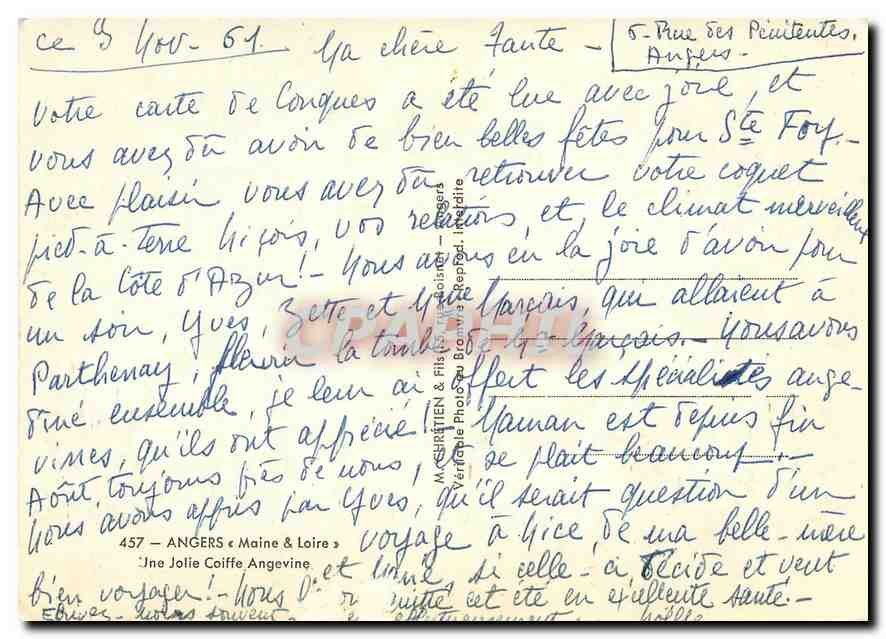 ce 3 Nov - 61. Ma chère Tante -
5 - Rue des Pénitentes.
Angers -
Votre carte de Conques a été lue avec joie, et
vous avez dû avoir de bien belles fêtes pour Ste Foy. -
Avec plaisir vous avez dû retrouver votre coquet
pied-à-terre Niçois, vos relations, et, le climat merveilleux
de la Côte d'Azur! - Nous avons eu la joie d'avoir pour
un soir, Yves, Zette et Mme Marçais, qui allaient à
Parthenay, fleurir la tombe de Mr Marçais. - Nous avons
dîné ensemble, je leur ai offert les spécialités ange-
vines, qu'ils ont apprécié! - Maman est depuis fin
Août, toujours près de nous, et se plait beaucoup. -
Nous avons appris par Yves, qu'il serait question d'un
voyage à Nice, de ma belle-mère
et si celle-ci, décide et veut
bien voyager! - Nous cet été en excellente santé. -
Ecrivez - nous souvent
M. CHRÉTIEN & Fils rue Boisnet - Angers
Véritable Photo au Bromure - Reprod. Interdite
457 — ANGERS « Maine & Loire »
Une Jolie Coiffe Angevine